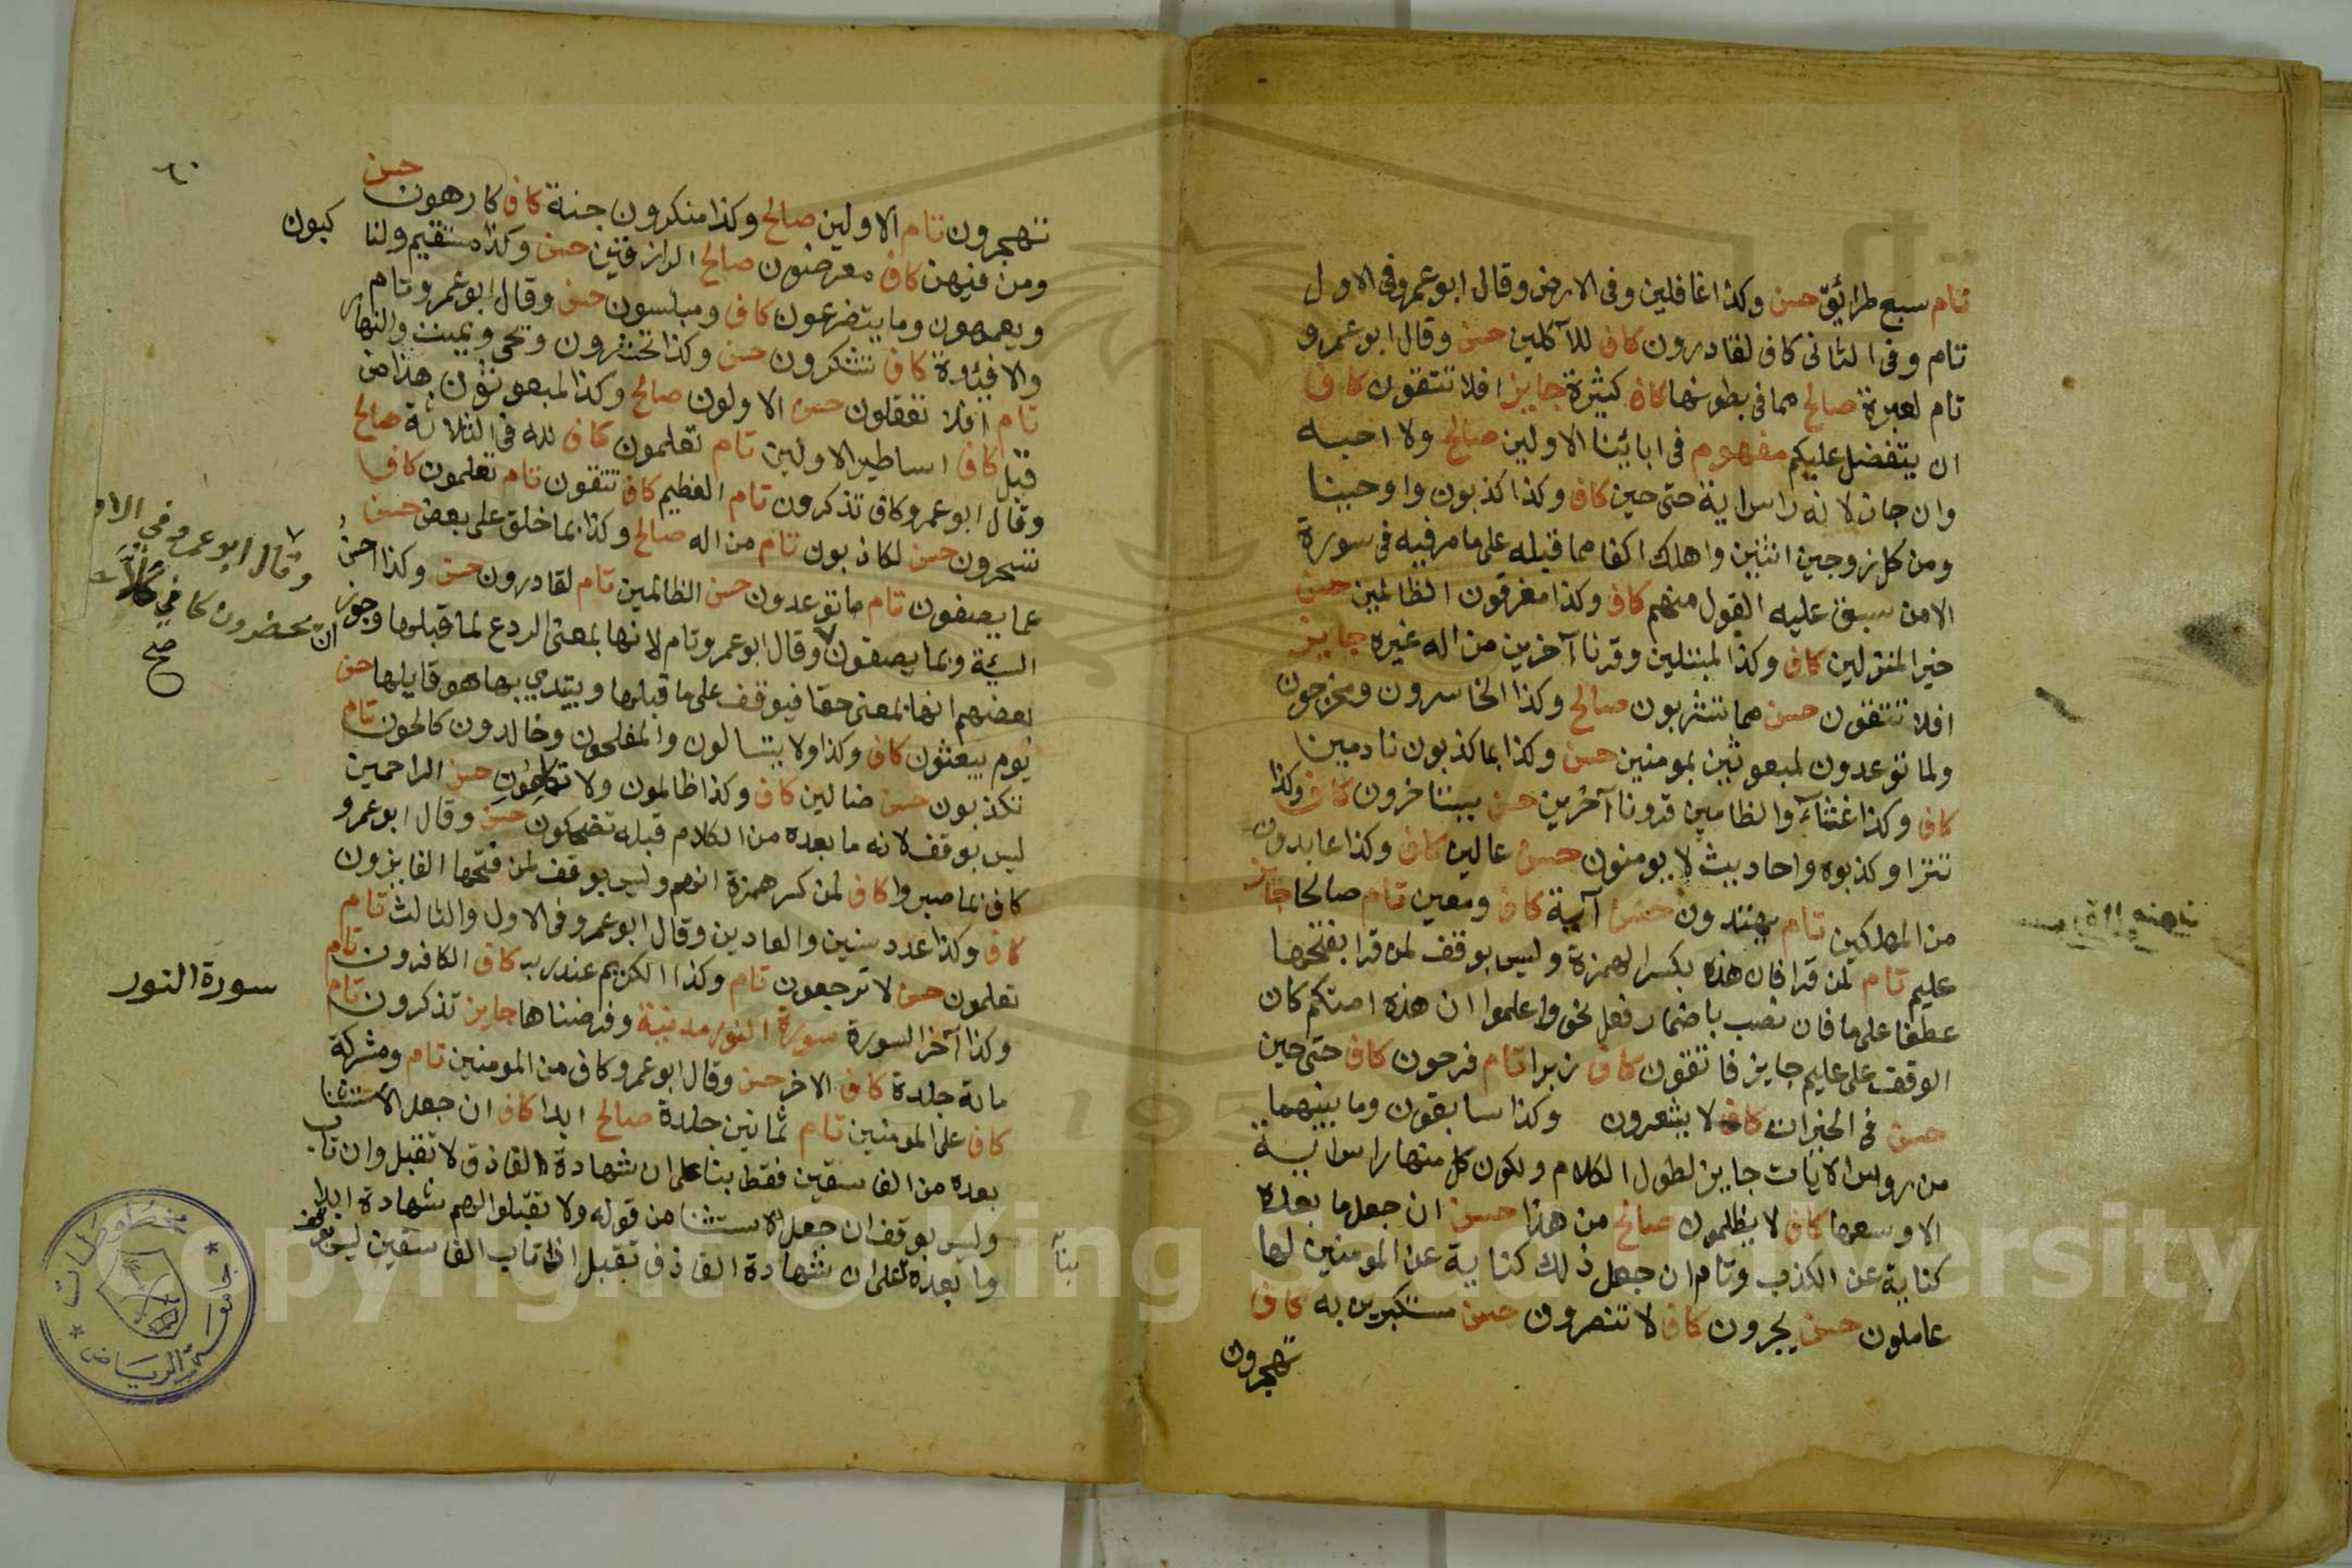 تام سبع طرائق حسن وكذا غافلين وفى الارض وقال ابو عمرو فى الاول
تام وفى الثانى كاف لقادرون كاف للآكلين حسن وقال ابو عمرو
تام لعبرة صالح مما فى بطونها كاف كثيرة جايز افلا تتقون كاف
ان يتفضل عليكم مفهوم فى ابائنا الاولين صالح ولا احبه
وان جاز لانه راس اية حتى حين كاف وكذا كذبون واوحينا
ومن كل زوجين اثنين واهلك اكفا مما قبله على ما مر فيه فى سورة
الا من سبق عليه القول منهم كاف وكذا مغرقون الظالمين حسن
خير المنزلين كاف وكذا لمبتلين وقرنا آخرين من اله غيره جايز
افلا تتقون حسن مما تشربون صالح وكذا الخاسرون ومخرجون
ولما توعدون لمبعوثين بمومنين حسن وكذا بما كذبون نادمين
كاف وكذا غثاء والظالمين قرونا آخرين حسن يستاخرون كاف وكذا
تترا وكذبوه واحاديث لا يومنون حسن عالين كاف وكذا عابدون
من المهلكين تام يهتدون حسن آية كاف ومعين تام صالحا جايز
عليم تام لمن قرا فان هذه بكسر الهمزة وليس بوقف لمن قرا بفتحها
عطفا على ما فان نصب باضمار فعل نحو واعلموا ان هذه امتكم كان
الوقف على عليم جايز فاتقون كاف زبرا تام فرحون كاف حتى حين
حسن فى الخيرات كاف لا يشعرون وكذا سابقون وما بينهما
من روس الايات جايز لطول الكلام ولكون كل منها راس اية
الا وسعها كاف لا يظلمون صالح من هذا حسن ان جعل ما بعده
كناية عن الكذب وتام ان جعل ذلك كناية عن المومنين لها
عاملون حسن يجرون كاف لا تنصرون حسن مستكبرين به كاف
تهجرون
٦٠
تهجرون تام الاولين صالح وكذا منكرون جنة كاف كارهون حسن
ومن فيهن كاف معرضون صالح الرازقين حسن وكذا مستقيم ولناكبون
ويعمهون وما يتضرعون كاف ومبلسون حسن وقال ابو عمرو تام
والافئدة كاف تشكرون حسن وكذا تحشرون ويحيى ويميت والنهار
تام افلا تعقلون حسن الاولون صالح وكذا لمبعوثون هذا من
قبل كاف اساطير الاولين تام تعلمون كاف لله فى الثلاثة صالح
وقال ابو عمرو كاف تذكرون تام العظيم كاف تتقون تام تعلمون كاف
تسحرون حسن لكاذبون تام من اله صالح وكذا بما خلق على بعض حسن
عما يصفون تام ما توعدون حسن الظالمين تام لقادرون حسن وكذا احسن
السيئة وبما يصفون وقال ابو عمرو تام لانها بمعنى الردع لما قبلها وجوز
بعضهم انها بمعنى حقا فيوقف على ما قبلها ويبتدي بها هو قايلها حسن
يوم يبعثون كاف وكذا ولا يتسالون والمفلحون وخالدون كالحون تام
تكذبون حسن ضالين كاف وكذا ظالمون ولا تكلمون حسن الراحمين
ليس بوقف لانه ما بعده من الكلام قبله تضحكون حسن وقال ابو عمرو
كاف بما صبروا كاف لمن كسر همزة انهم وليس بوقف لمن فتحها الفايزون
كاف وكذا عدد سنين والعادين وقال ابو عمرو فى الاول والثالث تام
تعلمون حسن لا ترجعون تام وكذا الكريم عند ربه كاف الكافرون تام
وكذا آخر السورة سورة النور مدنية وفرضناها جايز تذكرون تام
ماية جلدة كاف الاخر حسن وقال ابو عمرو كاف من المومنين تام ومشركة
كاف على المومنين تام ثمانين جلدة صالح ابدا كاف ان جعل الاستثنا
بعده من الفاسقين فقط بنا على ان شهادة القاذف لا تقبل وان تاب
وليس بوقف ان جعل الاستثنا من قوله ولا تقبلوا لهم شهادة ابدا
وما بعده على ان شهادة القاذف تقبل اذا تاب الفاسقين ليس بوقف
وقال ابو عمرو فى الاو
ان يحضرون كاف كلا
صح
سورة النور
بنآ
مخطوطات
جامعة الرياض
Copyright © King Saud University
195